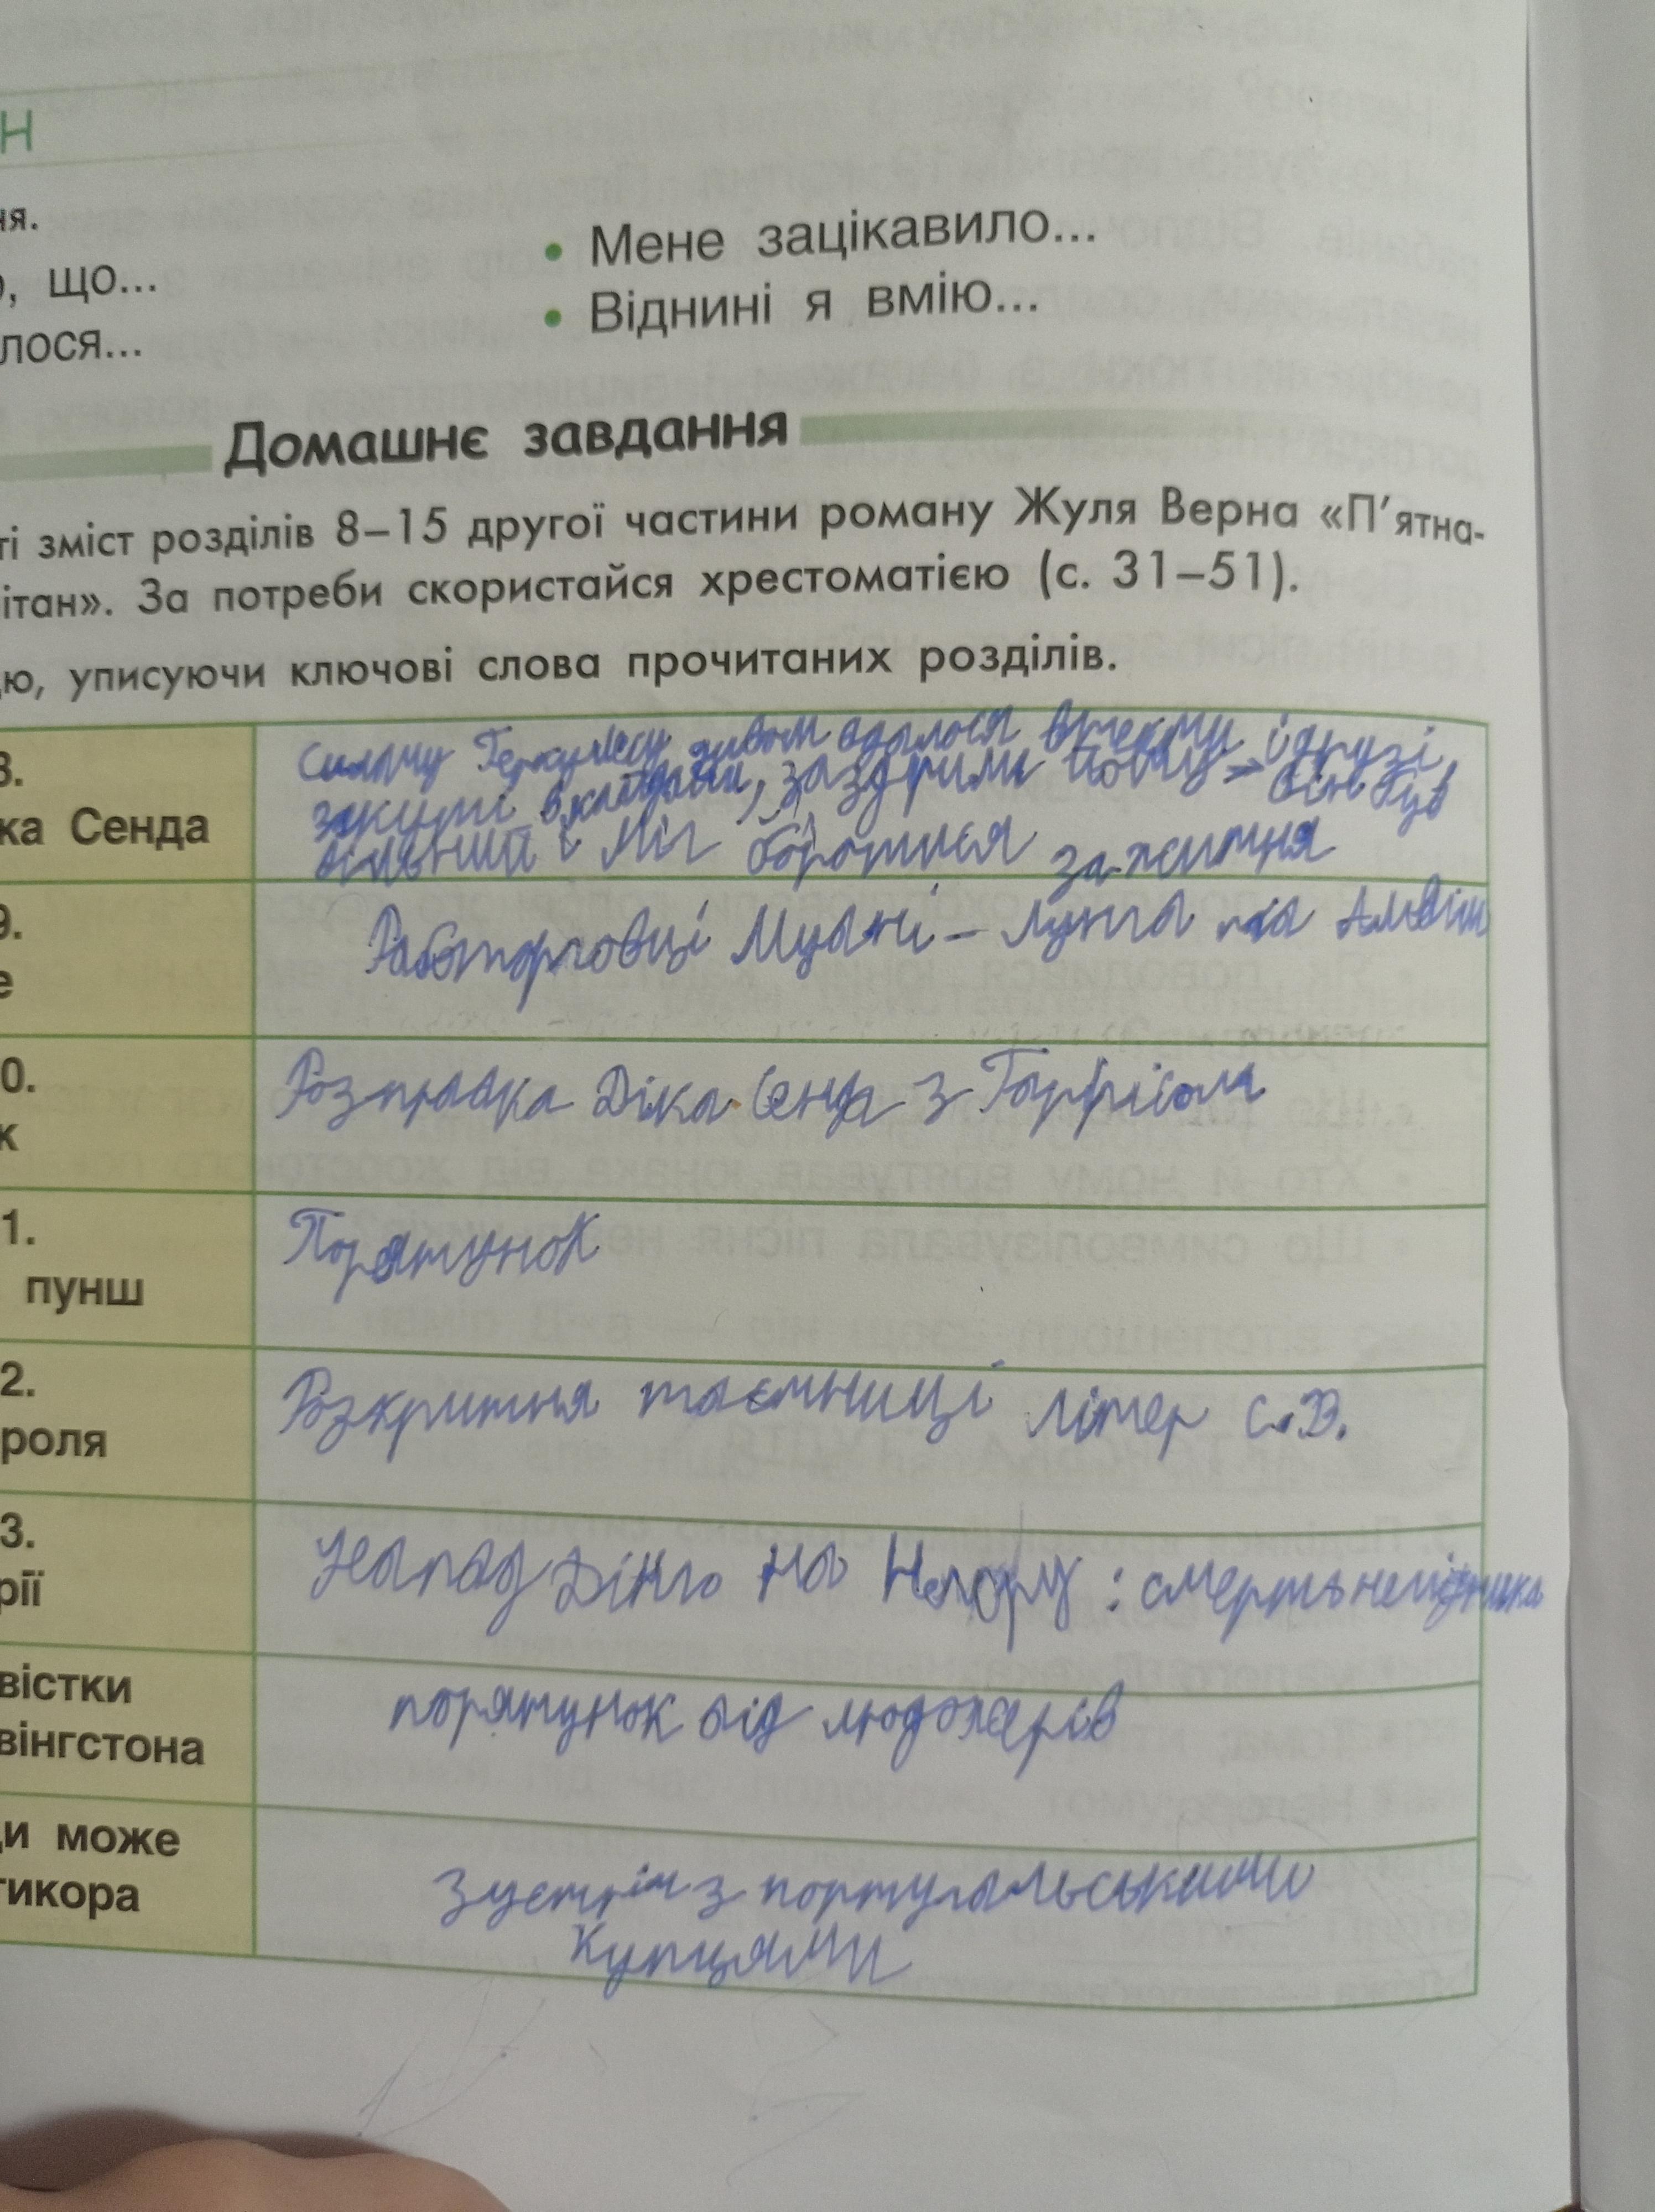 Н
ня.
• Мене зацікавило...
о, що...
• Віднині я вмію...
лося...
Домашнє завдання
ті зміст розділів 8–15 другої частини роману Жуля Верна «П'ятна-
ітан». За потреби скористайся хрестоматією (с. 31–51).
ю, уписуючи ключові слова прочитаних розділів.
8.
ка Сенда
Силачу Геркулесу дивом вдалося втекти і друзі
закуті в кайдани, заздрили йому – він був
вільний і міг боротися за життя
9.
е
Работорговці Муані – Лунга та Алвіш
0.
к
Розправа Діка Сенда з Гаррісом
1.
пунш
Порятунок
2.
роля
Розкриття таємниці літер С.В.
3.
рії
Напад Дінго на Негору : смерть негідника
вістки
вінгстона
порятунок від людожерів
ди може
тикора
Зустріч з португальськими
купцями